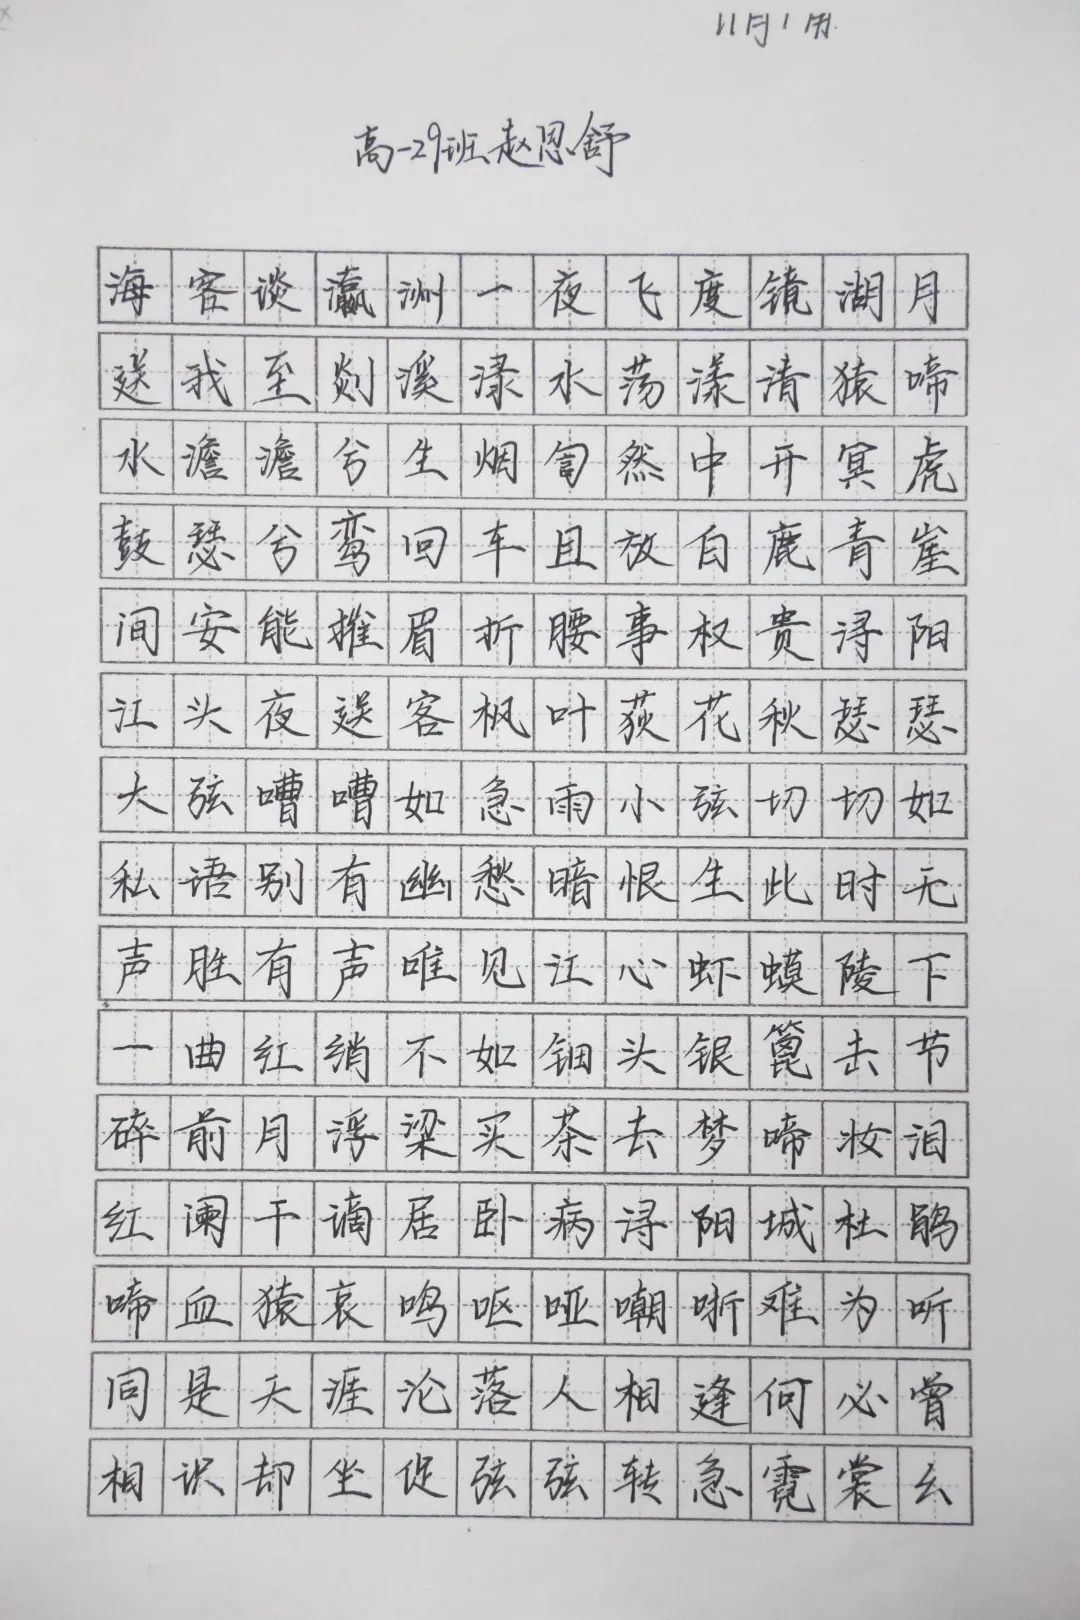 11月1周
高一29班赵恩舒
海客谈瀛洲一夜飞度镜湖月
送我至剡溪渌水荡漾清猿啼
水澹澹兮生烟訇然中开冥虎
鼓瑟兮鸾回车且放白鹿青崖
间安能摧眉折腰事权贵浔阳
江头夜送客枫叶荻花秋瑟瑟
大弦嘈嘈如急雨小弦切切如
私语别有幽愁暗恨生此时无
声胜有声唯见江心虾蟆陵下
一曲红绡不如钿头银篦击节
碎前月浮梁买茶去梦啼妆泪
红阑干谪居卧病浔阳城杜鹃
啼血猿哀鸣呕哑嘲哳难为听
同是天涯沦落人相逢何必曾
相识却坐促弦弦转急霓裳幺